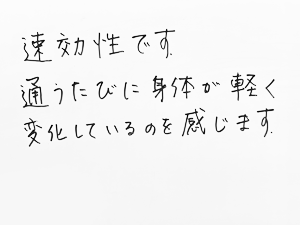 速効性です.
通うたびに身体が軽く
変化しているのを感じます.